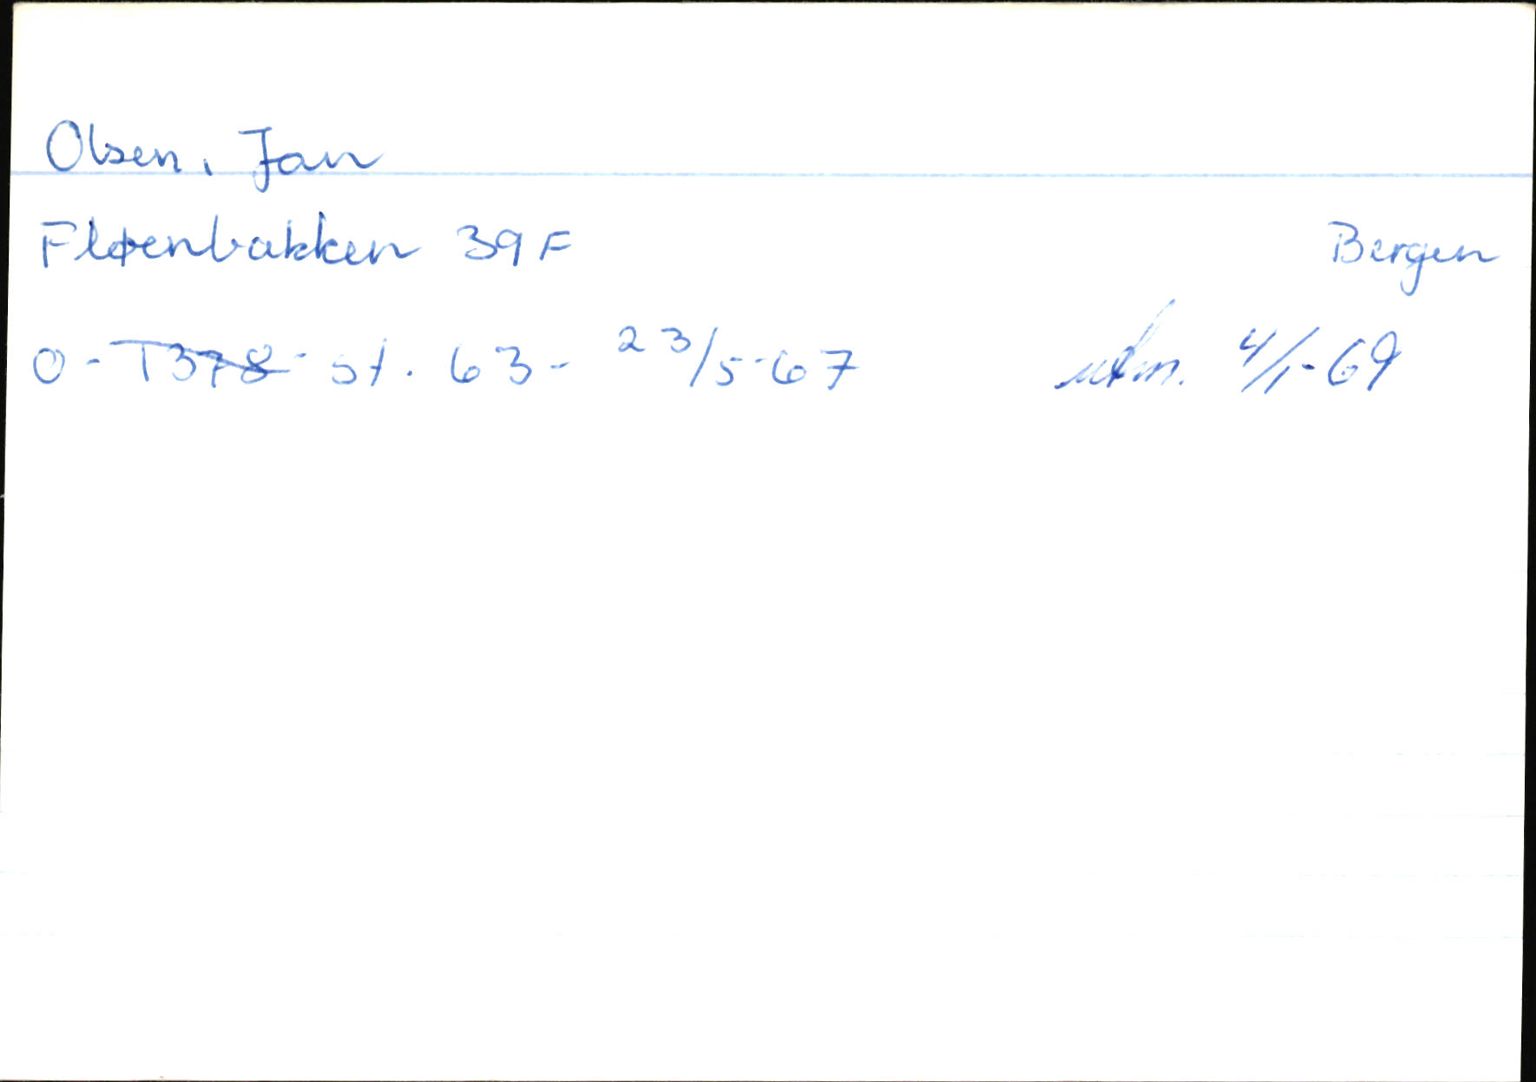 Olsen, Jan
Fløenbakken 39 F Bergen
O - T378 - st. 63 - 23/5-67 utm. 4/1-69